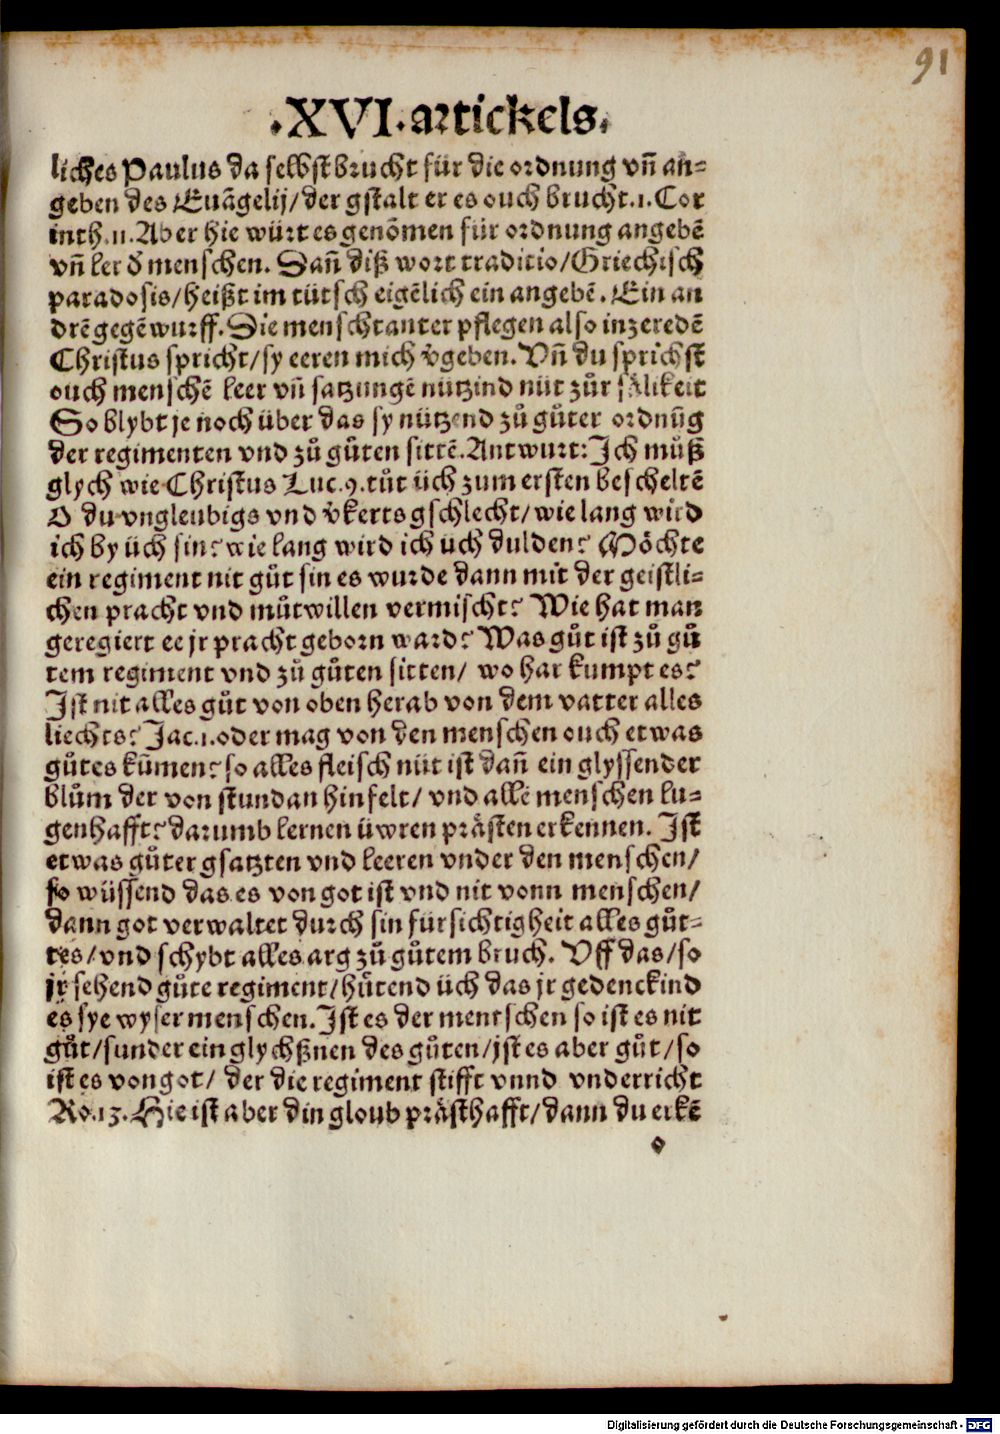 91
.XVI.artickels.
liches Paulus da selbst brucht für die ordnung vñ an-
geben des Euãgelij/der gstalt er es ouch brucht.1.Cor
inth.11.Aber hie würt es genõmen für ordnung angebẽ
vñ ler d̕ menschen. Dañ diß wort traditio/Griechisch
paradosis/heißt im tütsch eigẽlich ein angebẽ. Ein an
drẽ gegẽwurff. Die menschtanter pflegen also inzeredẽ
Christus spricht/sy eeren mich v̕geben. Vñ du sprichst
ouch menschẽ leer vñ satzungẽ nützind nüt zůr sälikeit
So blybt je noch über das sy nützend zů gůter ordnũg
der regimenten vnd zů gůten sittẽ. Antwurt: Ich můß
glych wie Christus Luc.9.tůt üch zum ersten bescheltẽ
O du vngleubigs vnd v̕kerts gschlecht/wie lang wird
ich by üch sin? wie lang wird ich üch dulden? Möchte
ein regiment nit gůt sin es wurde dann mit der geistli-
chen pracht vnd můtwillen vermischt? Wie hat man
geregiert ee jr pracht geborn ward? Was gůt ist zů gů
tem regiment vnd zů gůten sitten/ wo har kumpt es?
Ist nit alles gůt von oben herab von dem vatter alles
liechts? Jac.1.oder mag von den menschen ouch etwas
gůtes kũmen? so alles fleisch nüt ist dañ ein glyssender
blům der von stundan hinfelt/ vnd alle menschen lu-
genhafft? darumb lernen üwren prästen erkennen. Ist
etwas gůter gsatzten vnd leeren vnder den menschen/
so wüssend das es von got ist vnd nit vonn menschen/
dann got verwaltet durch sin fürsichtigheit alles gůt-
tes/vnd schybt alles arg zů gůtem bruch. Vff das/so
jr sehend gůte regiment/hůtend üch das jr gedenckind
es sye wyser menschen. Ist es der mentschen so ist es nit
gůt/sunder ein glychßnen des gůten/jst es aber gůt/so
ist es von got/ der die regiment stifft vnnd vnderricht
Ro.13. Hie ist aber din gloub prästhafft/dann du erkẽ
o
Digitalisierung gefördert durch die Deutsche Forschungsgemeinschaft - DFG